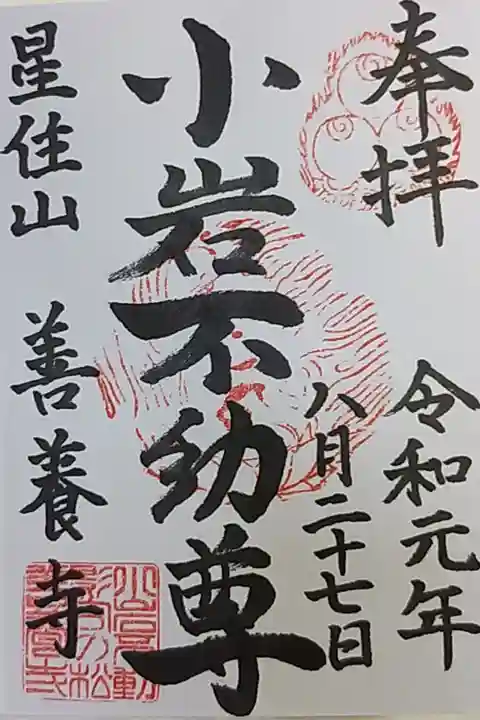 奉拝
令和元年
八月二十七日
小岩不動尊
星住山 善養寺